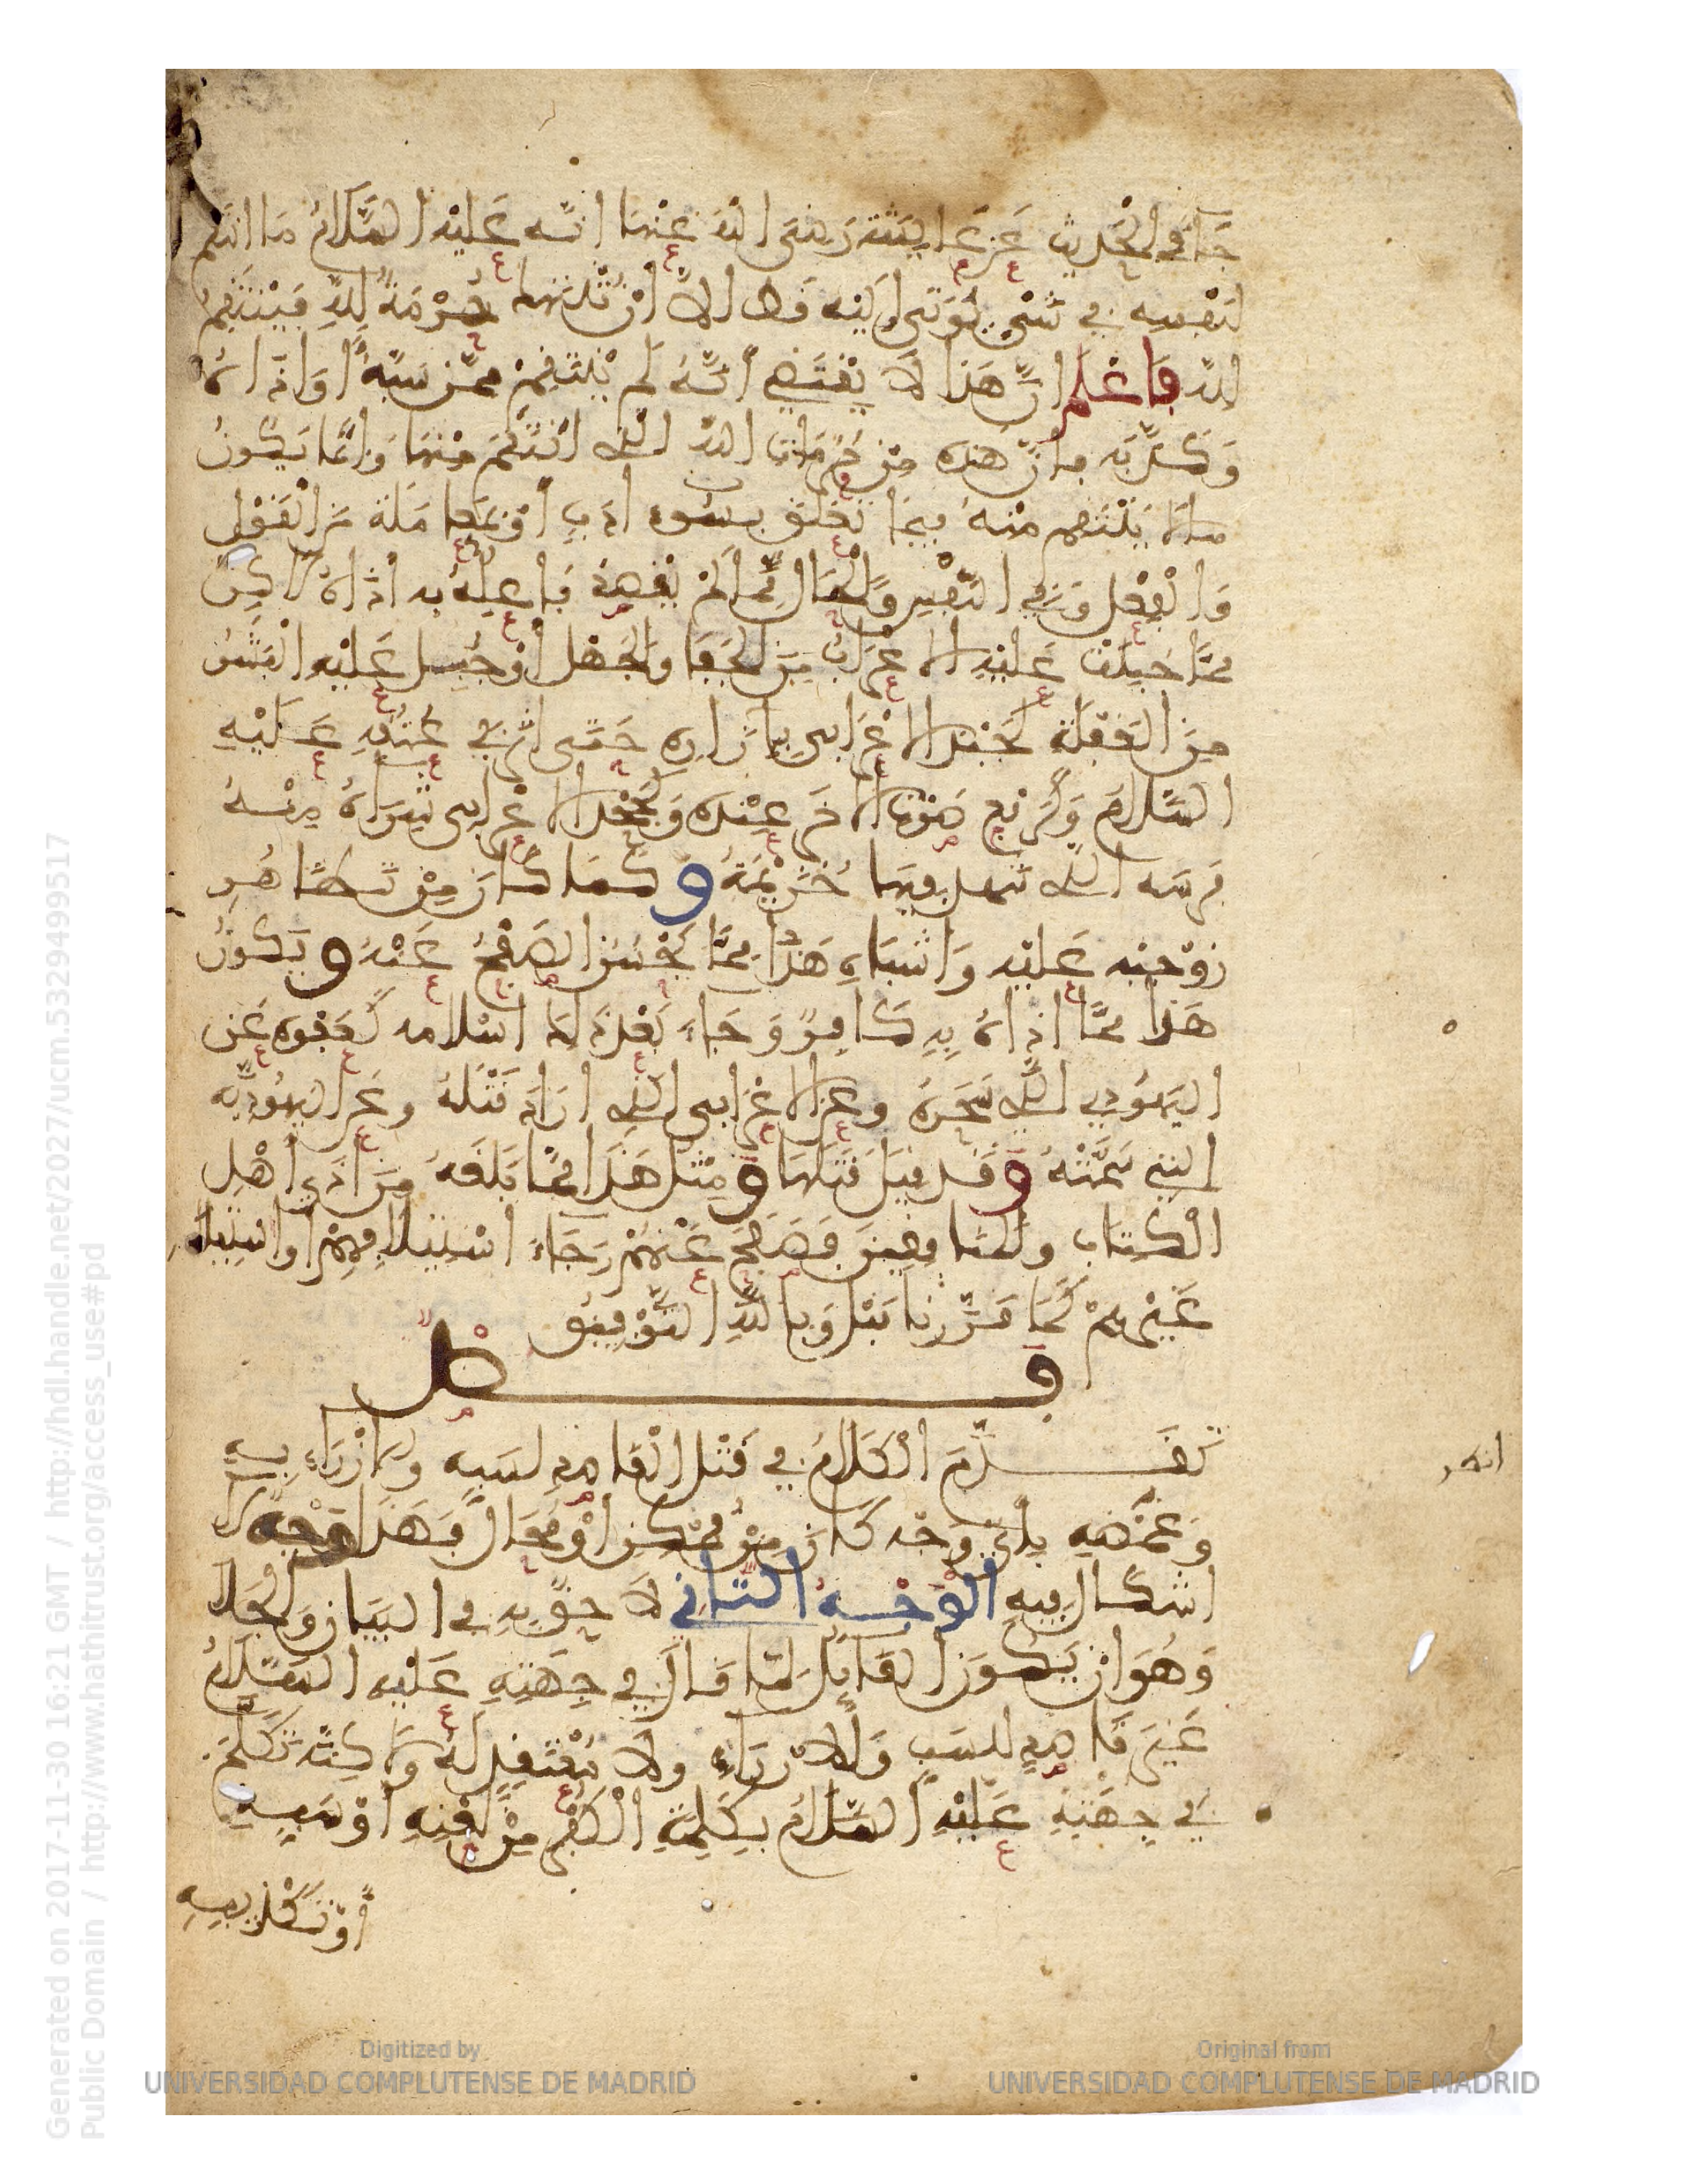 جَاءَ في الْحَديث عَن عَايشة رَضيَ الله عَنْها انّه عَليْه السَّلَامُ مَا انتَقم
لنَفْسه في شَيْءٍ يُوتَى إِلَيْه قَط الاَّ أنْ تُنتهك حُرْمَةُ للهِ فَيَنْتَقِمُ
لله فَاعْلم انّ هَذا لَا يقْتَضِي أنّهُ لَم يَنْتَقِمْ ممّن سَبّهُ أوَ اذَاهُ
وَكذّبَه فإنّ هَذه من حُرُمَات الله التي انْتَقَمَ منْها وَإنّما يَكونُ
مالا يَنْتَقِم منْهُ فيمَا تَعَلّق بسُوء ادَبٍ أوْ مُعَامَلة مِنَ الْقَوْل
وَالْفِعْل في النّفْس وَالْمَال ممّا لمْ يقْصِدْ فاعِلُهُ به اذَاهُ لَاكِن
ممّا جُبِلَتْ عَلَيْه الاعْرَابُ مِنَ الْجَفَا وَالْجَهْل أوْ جُبِل عَليْه الْبَشَرُ
مِنَ الغَفْلَة كَجَبْذِ الاعْرَابي بإزاره حَتّى اثر في عُنُقِهِ عَلَيْهِ
السَّلام وَكَرَفْع صَوْت الاخَر عِنْدَه وَكَجَحْد الاعْرابي شِرَاهُ مِنْهُ
فرسَه التي شهد فيها خُزَيْمَةُ و كَما كَان مِنْ تَظَاهُرِ
زوْجيْه عَليْه وَاشباه هَذا ممّا يَحْسُن الصَفْحُ عَنْهُ و يَكونُ
هَذا ممّا اذاهُ بِهِ كَافِرٌ وَ جَاءَ بَعْدَ ذَلِكَ اسْلامه كَعَفْوه عَن
اليَهُودي الذي سَحَرَهُ وعن الاعْرَابي الذي ارَادَ قَتْلَهُ وعَن اليهُوديّه
التي سَمَّتْهُ و قَد قيلَ قَتَلَهَا و مثل هَذَا ممّا بَلَغَهُ مِنَ اذَى أهْل
الْكتاب والمنافقينَ فَصَفَحَ عَنْهمْ رَجَاءَ اسْتيلافهمْ واسْتِيلاف
غَيْرهِمْ كَمَا قَرّرْنا قبْل وَبِاللهِ التّوْفيقُ
فصل
تَقَدّمَ الْكَلَامُ في قَتْل الْقَاصِدِ لسَبِه وَالازْرَاءِ بِه
وَغَمْصِه بأي وَجْه كَانَ مِنْ مُمْكِن أوْ مُحَال فَهَذا وَجْهٌ لا
اشكَال فيه الوَجْهُ الثّاني لاَحِقٌ بِهِ في البيان وَالْجلاء
وَهُوَ ان يَكونَ القَايِلُ لمَا قالَ في جِهَتِهِ عَليْه السّلَامُ
غَيْرَ قَاصِدٍ للسَبِ وَالازرَاءِ ولا مُعْتَقِدٍ لهُ وَلَاكِنّه تَكَلّمَ
في جِهَتِهِ عَليْهِ السّلامُ بِكَلِمَةِ الْكُفْرِ مِنْ لَعْنِهِ أوْ سَبِهِ
أوْ تَكْذيبِهِ
انظر
Generated on 2017-11-30 16:21 GMT / http://hdl.handle.net/2027/ucm.5329499517
Public Domain / http://www.hathitrust.org/access_use#pd
Digitized by
UNIVERSIDAD COMPLUTENSE DE MADRID
Original from
UNIVERSIDAD COMPLUTENSE DE MADRID